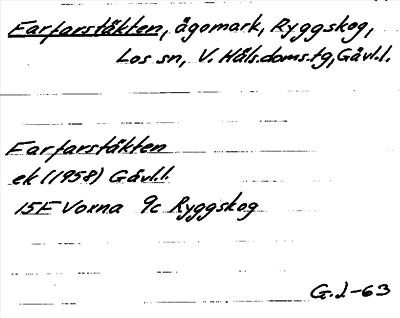 Farfarstäkten, ägomark, Ryggskog,
Los sn, V. Häls.doms.tg, Gävl.l.
Farfarstäkten
ek (1958) Gävl.l.
15F Voxna 9c Ryggskog
G.J.-63